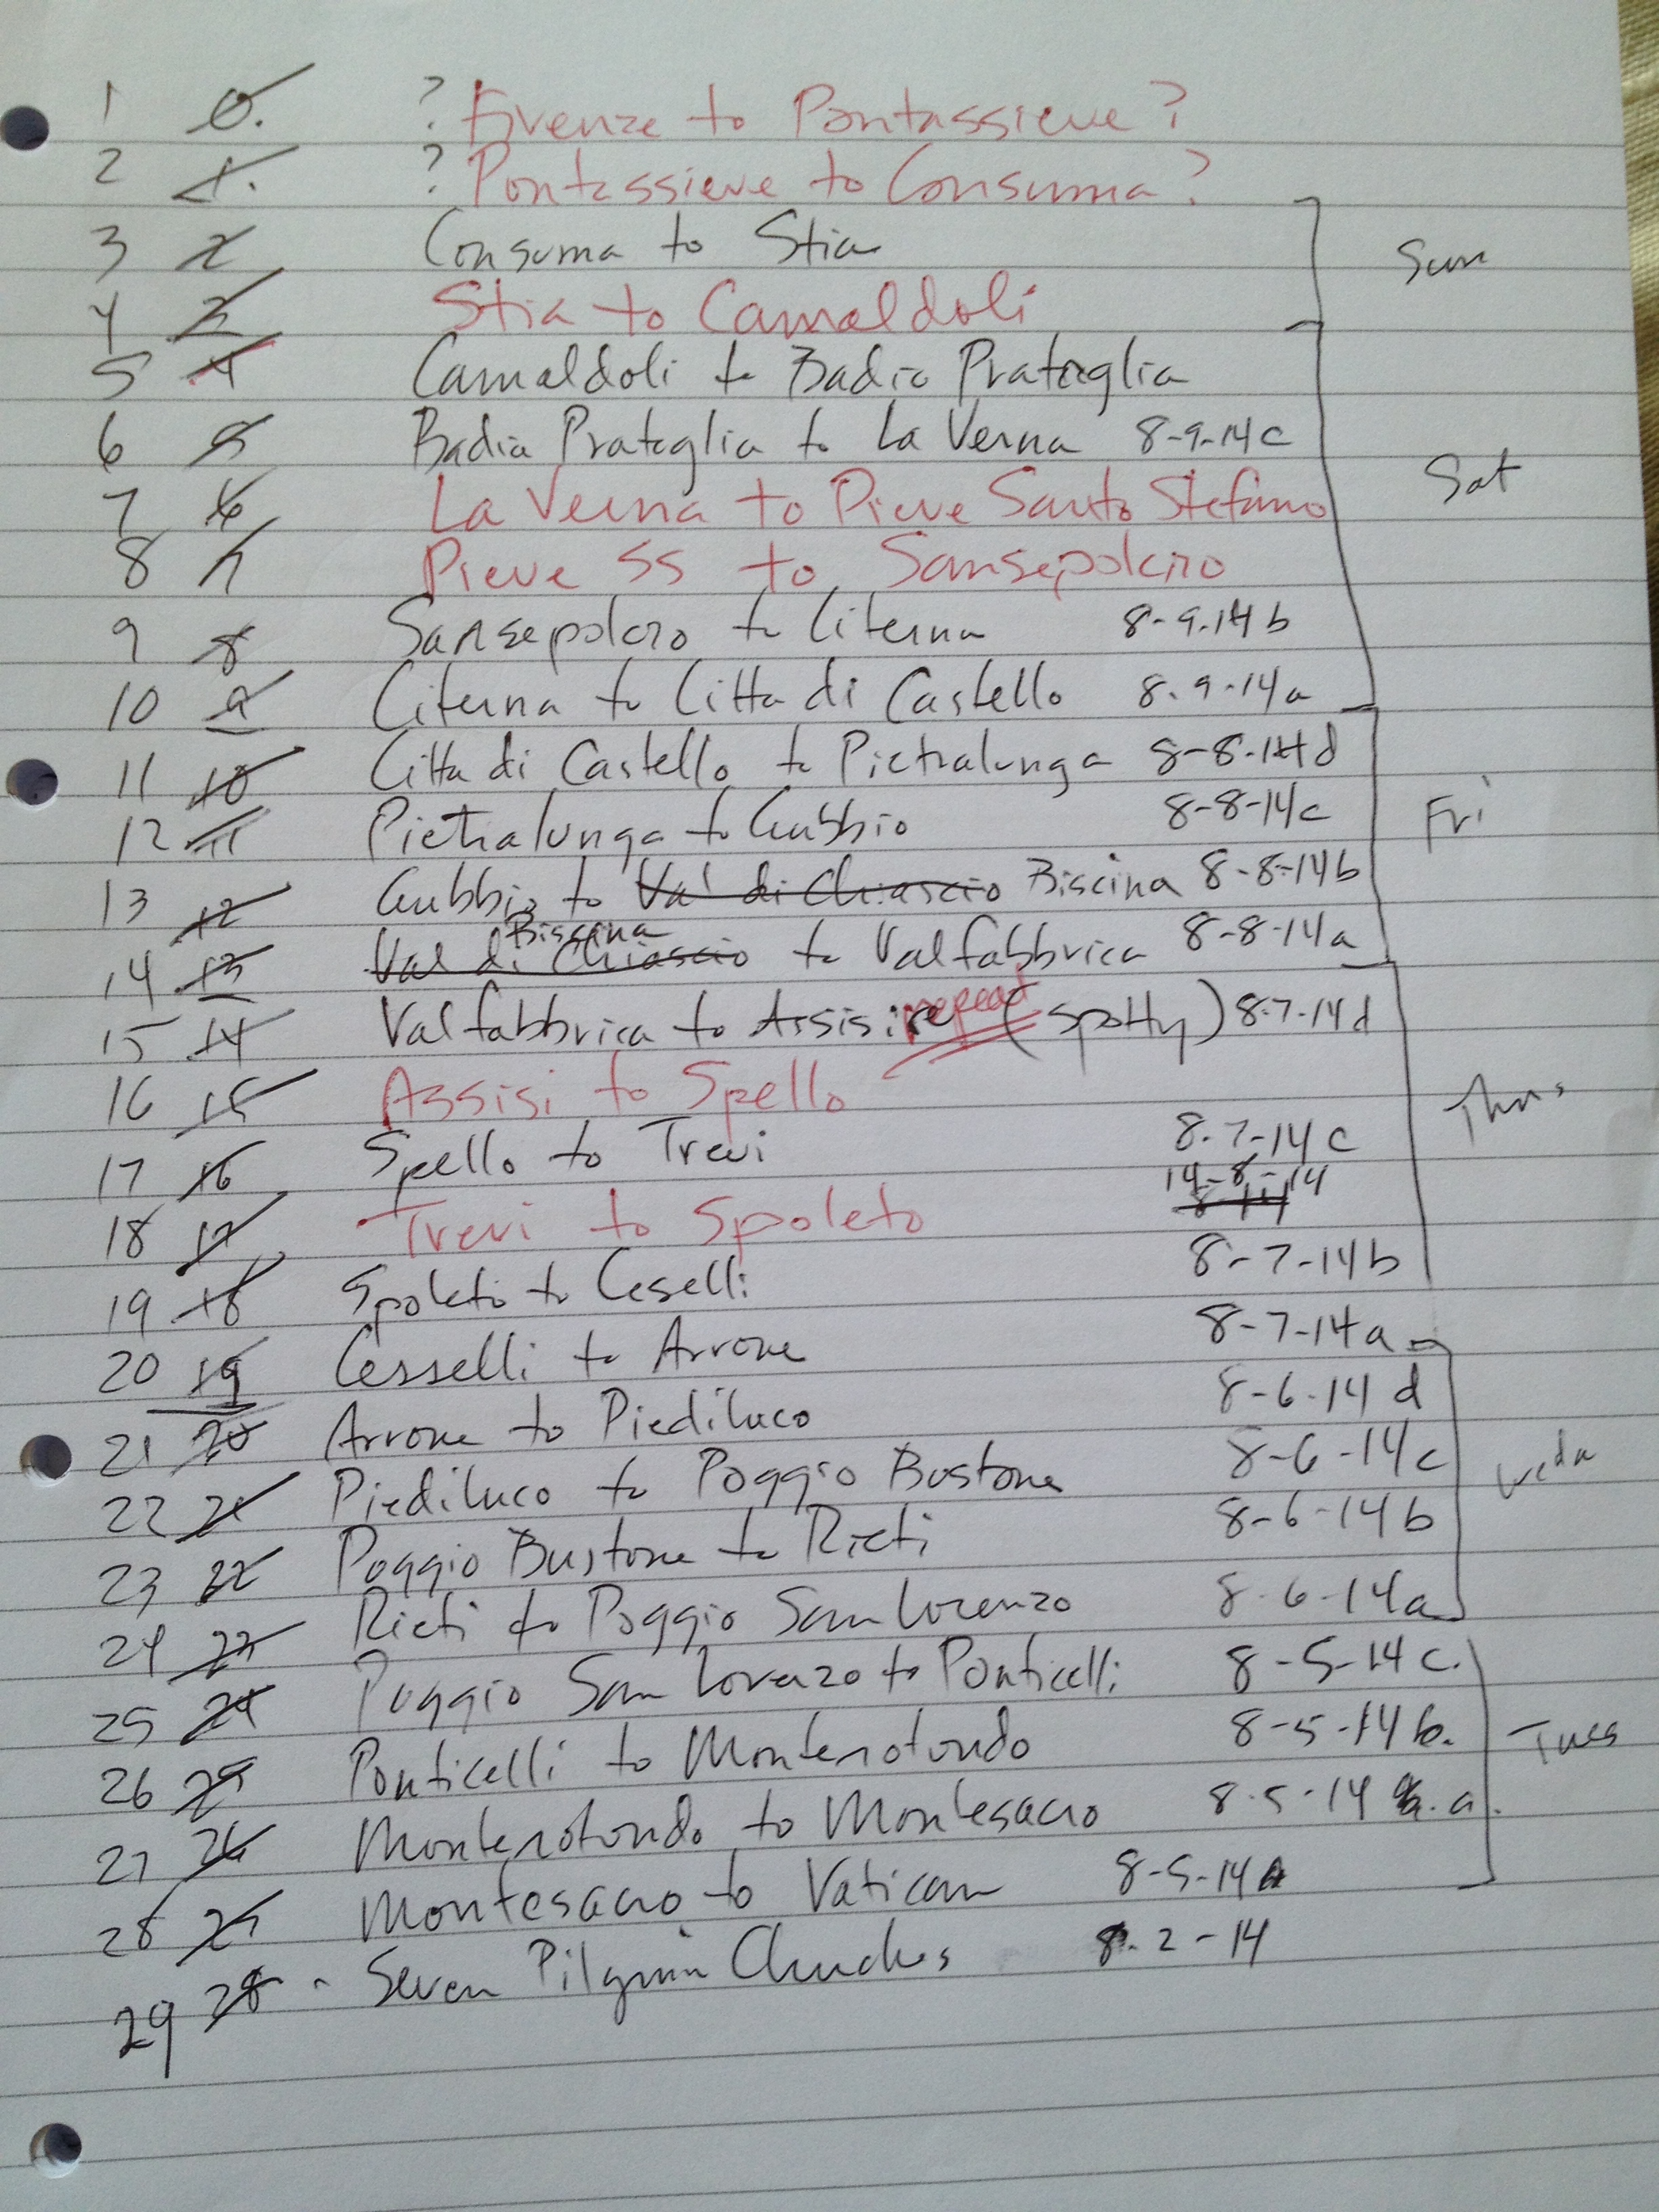 1 0. ? Firenze to Pontassieve?
2 1. ? Pontassieve to Consuma?
3 2 Consuma to Stia
Sun
4 3 Stia to Camaldoli
5 4 Camaldoli to Badia Prataglia
6 5 Badia Prataglia to La Verna 8-9-14c
Sat
7 6 La Verna to Pieve Santo Stefano
8 7 Pieve SS to Sansepolcro
9 8 Sansepolcro to Citerna 8-9-14b
10 9 Citerna to Citta di Castello 8-9-14a
11 10 Citta di Castello to Pietralunga 8-8-14d
12 11 Pietralunga to Gubbio 8-8-14c
Fri
13 12 Gubbio to Val di Chiascio Biscina 8-8-14b
Biscina
14 13 Val di Chiascio to Valfabbrica 8-8-14a
repeat
15 14 Valfabbrica to Assisi (spotty) 8-7-14d
16 15 Assisi to Spello
Thurs
17 16 Spello to Trevi 8-7-14c
14-8-14
18 17 Trevi to Spoleto 8-14
19 18 Spoleto to Ceselli 8-7-14b
20 19 Cesselli to Arrone 8-7-14a
21 20 Arrone to Piediluco 8-6-14d
22 21 Piediluco to Poggio Bustone 8-6-14c
Wedn
23 22 Poggio Bustone to Rieti 8-6-14b
24 23 Rieti to Poggio San Lorenzo 8-6-14a
25 24 Poggio San Lorenzo to Ponticelli 8-5-14c.
26 25 Ponticelli to Monterotondo 8-5-14b.
Tues
27 26 Monterotondo to Montesacro 8-5-14 a.
28 27 Montesacro to Vatican 8-5-14
29 28 - Seven Pilgrim Churches 8-2-14